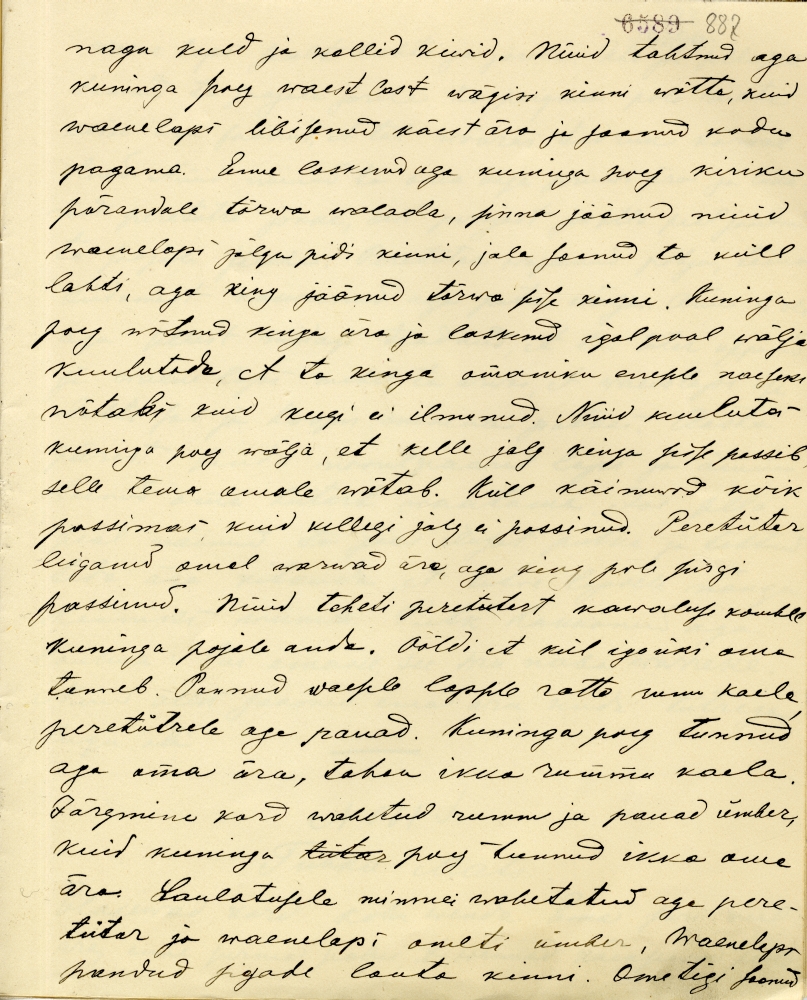 6589 882
naga kuld ja kallid kiwid. Nüüd tahtnud aga
kuninga poeg waest last wägisi kinni wõtta, kuid
waenelaps libisenud käest ära ja saanud kodu
pagama. Enne lasknud aga kuninga poeg kiriku
põrandale tõrwa walada, sinna jäänud nüüd
waenelapsi jalgu pidi kinni, jala saanud ta küll
lahti, aga king jäänud tõrwa sisse kinni. Kuninga
poeg wõtnud kinga ära ja lasknud igalpool wälja
kuulutada, et ta kinga omaniku enesele naeseks
wõtaks kuid keegi ei ilmunud. Nüüd kuulutas
kuninga poeg wälja, et kelle jalg kinga sisse passib
selle tema omale wõtab. Küll käinuwad kõik
passimas, kuid kellegi jalg ei passinud. Peretütar
leiganud omal warwad ära, aga king pole siisgi
passinud. Nüüd taheti peretütert kawaluse kombel
kuninga pojale anda. Ööldi et küll igaüks oma
tunneb. Pannud waesele lapsele ratta rummu kaela,
peretütrele aga pauad. Kuninga poeg tunnud
aga oma ära, tahan ikka rummu kaela.
Järgmine kord wahetud rumm ja pauad ümber,
kuid kuninga tütar poeg tunnud ikka oma
ära. Laulatusele minnes wahetatud aga pere-
tütar ja waenelaps ometi ümber, Waenelaps
pandud sigade lauta kinni. Ometigi saanud